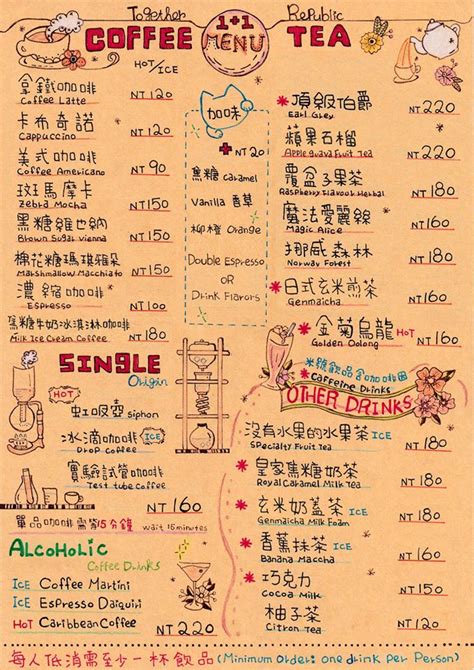 Together 1+1 Republic
COFFEE MENU TEA
HOT/ICE
拿鐵咖啡 NT 120
Coffee Latte
卡布奇諾 NT 120
Cappuccino
美式咖啡 NT 90
Coffee Americano
斑馬摩卡 NT 150
Zebra Mocha
黑糖維也納 NT 150
Brown Sugar Vienna
棉花糖瑪琪雅朵 NT 150
Marshmallow Macchiato
濃縮咖啡 NT 100
Espresso
焦糖牛奶冰淇淋咖啡 NT 180
Milk Ice Cream Coffee
加味
+ NT 20
焦糖 Caramel
Vanilla 香草
柳橙 Orange
Double Espresso
OR
Drink Flavors
*頂級伯爵 NT 220
Earl Grey
*蘋果石榴 NT 220
Apple guava Fruit Tea
*覆盆子果茶 NT 180
Raspberry Flavour Herbal
魔法愛麗絲 NT 180
Magic Alice
*挪威森林 NT 180
Norway Forest
*日式玄米煎茶 NT 160
Genmaicha
*金菊烏龍 HOT NT 160
Golden Oolong
SINGLE
Origin
HOT
虹吸壺 Siphon
冰滴咖啡 ICE
Drop Coffee
實驗試管咖啡
Test tube Coffee
NT 160
單品咖啡需等15分鐘 wait 15minutes
ALCOHOLIC
Coffee Drinks
ICE Coffee Martini
ICE Espresso Daiquiri
HOT Caribbean Coffee
NT 220
*號飲品含咖啡因
*Caffeine Drinks
OTHER DRINKS
沒有水果的水果茶 ICE NT 180
Specialty Fruit Tea
*皇家焦糖奶茶 NT 180
Royal Caramel Milk Tea
*玄米奶蓋茶 HOT NT 180
Genmaicha Milk Foam
*香蕉抹茶 ICE NT 160
Banana Maccha
*巧克力 NT 150
Cocoa Milk
柚子茶 NT 120
Citron Tea
每人低消需至少一杯飲品 (Minimum Order: one drink per Person)